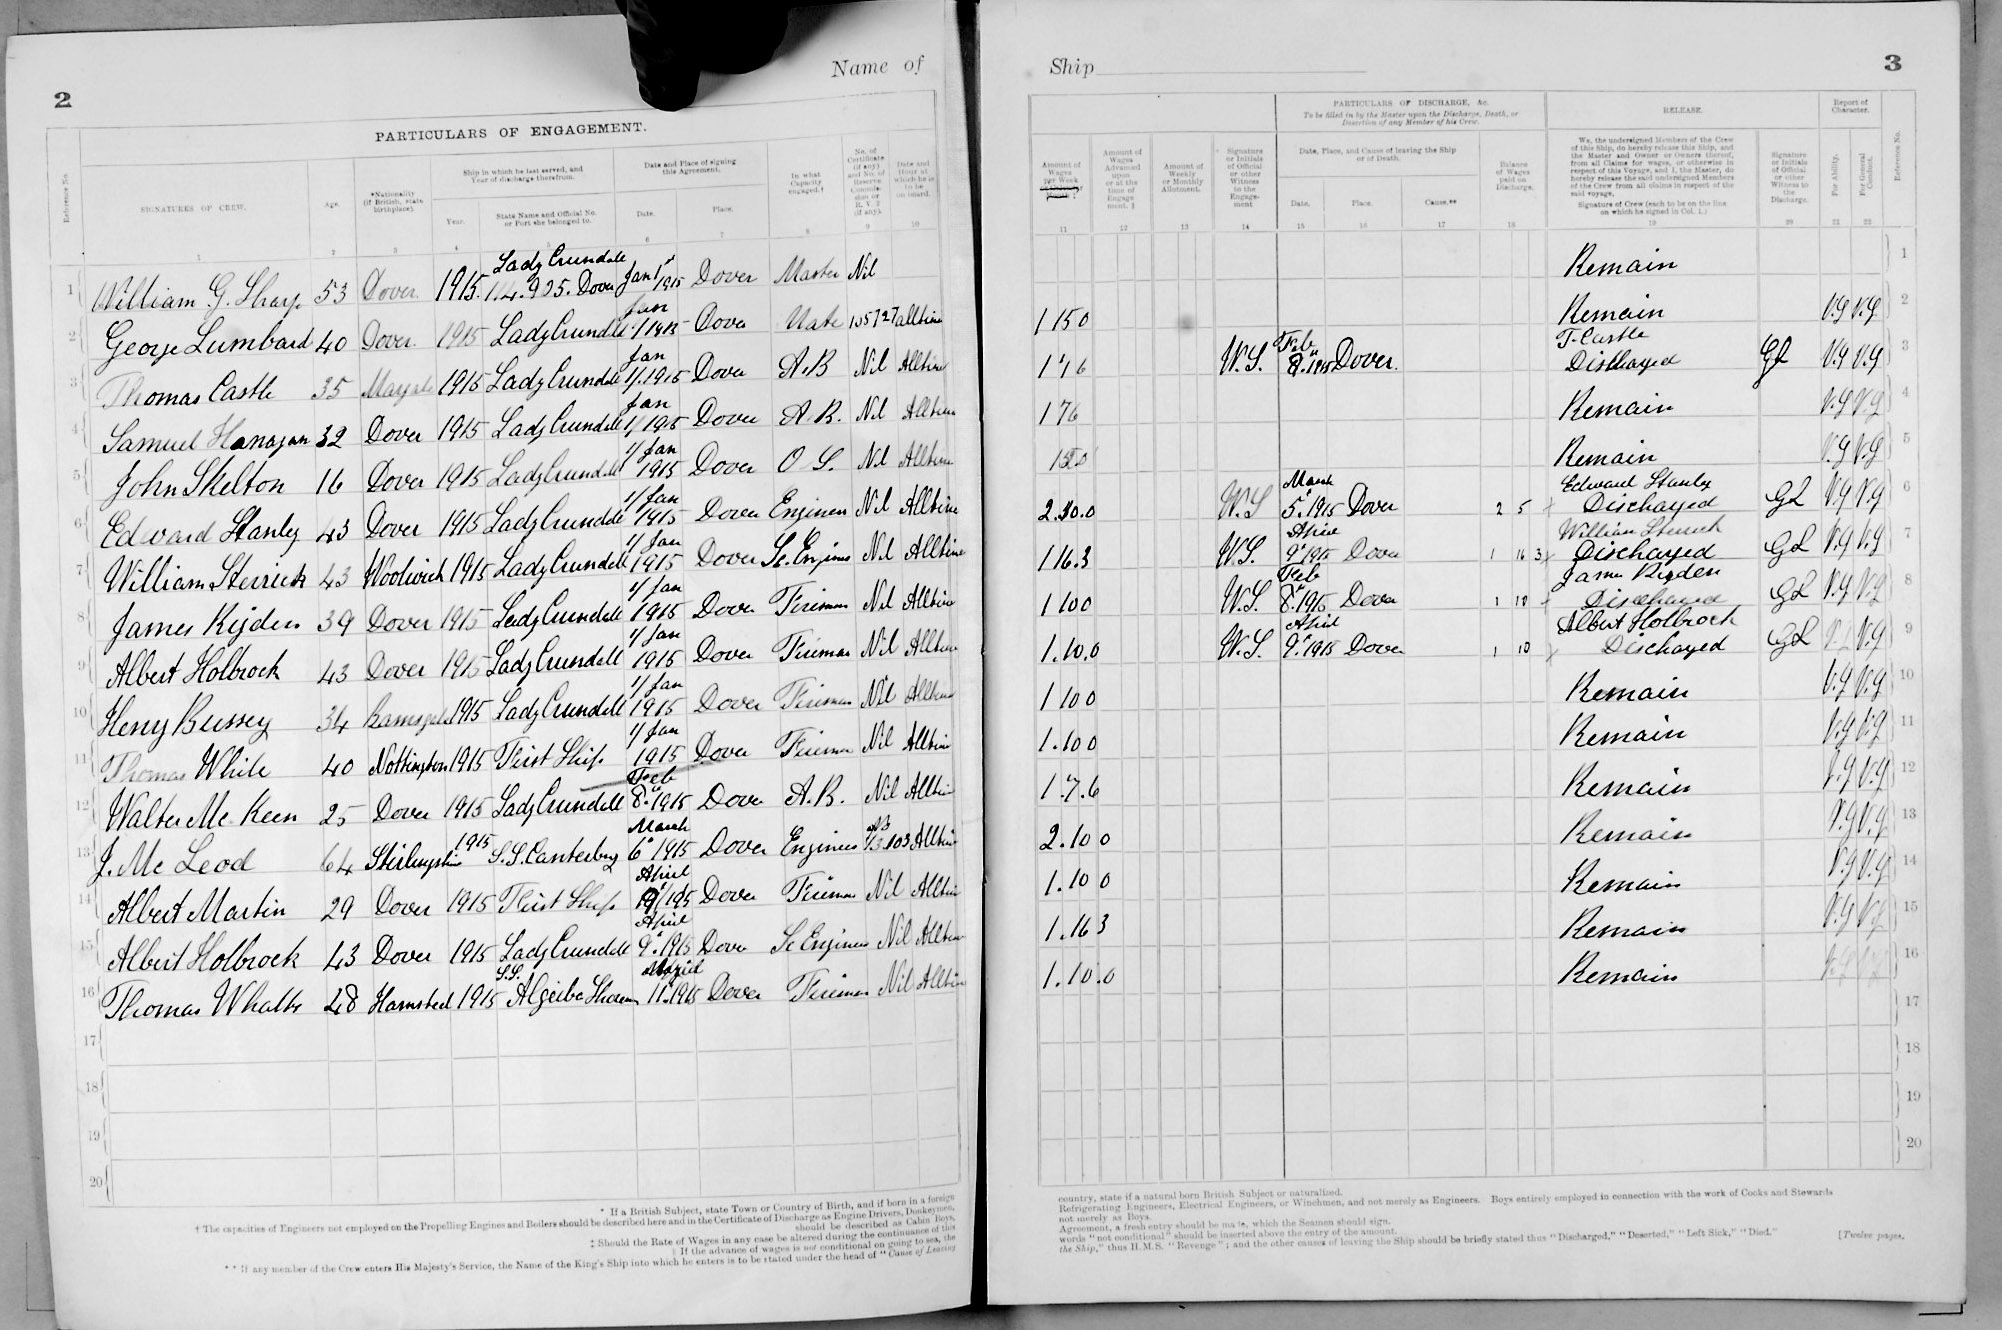 2
Name of
PARTICULARS OF ENGAGEMENT.
Reference No.
SIGNATURES OF CREW.
Age.
*Nationality (if British, state birthplace).
Ship in which he last served, and Year of discharge therefrom.
Year.
State Name and Official No. or Port she belonged to.
Date and Place of signing this Agreement.
Date.
Place.
In what Capacity engaged.†
No. of Certificate (if any) and No. of Reserve Commission or R. V. 2 (if any).
Date and Hour at which he is to be on board.
1 2 3 4 5 6 7 8 9 10
1 William G. Sharp 53 Dover 1915. Lady Crundall 114.905. Dover Jan 1st 1915 Dover Master Nil
2 George Lumbard 40 Dover 1915 Lady Crundall Jan 1 1915 Dover Mate 105727 alltime
3 Thomas Castle 35 Margate 1915 Lady Crundall Jan 1/1915 Dover A.B Nil Alltime
4 Samuel Hanagan 32 Dover 1915 Lady Crundall Jan 1/1915 Dover A.B. Nil Alltime
5 John Skelton 16 Dover 1915 Lady Crundall 1/Jan 1915 Dover O S. Nil Alltime
6 Edward Stanley 43 Dover 1915 Lady Crundall 1/Jan 1915 Dover Engineer Nil Alltime
7 William Sterrick 43 Woolwich 1915 Lady Crundall 1/Jan 1915 Dover Sc. Engineer Nil Alltime
8 James Rigden 39 Dover 1915 Lady Crundall 1/Jan 1915 Dover Fireman Nil Alltime
9 Albert Holbrock 43 Dover 1915 Lady Crundall 1/Jan 1915 Dover Fireman Nil Alltime
10 Henry Bussey 34 Ramsgate 1915 Lady Crundall 1/Jan 1915 Dover Fireman Nil Alltime
11 Thomas White 40 Nottington 1915 First Ship 1/Jan 1915 Dover Fireman Nil Alltime
12 Walter Mc Keen 25 Dover 1915 Lady Crundall Feb 8. 1915 Dover A.B. Nil Alltime
13 J. Mc Leod 64 Stirlingshire 1915 S.S. Canterbury March 6 1915 Dover Engineer Alltime
14 Albert Martin 29 Dover 1915 First Ship April Dover Fireman Nil Alltime
15 Albert Holbrock 43 Dover 1915 Lady Crundall April 9. 1915 Dover Sc Engineer Nil Alltime
16 Thomas 48 Hamsted 1915 S.S. April 11. 1915 Dover Fireman Nil Alltime
17
18
19
20
* If a British Subject, state Town or Country of Birth, and if born in a foreign
† The capacities of Engineers not employed on the Propelling Engines and Boilers should be described here and in the Certificate of Discharge as Engine Drivers, Donkeymen,
should be described as Cabin Boys,
‡ Should the Rate of Wages in any case be altered during the continuance of this
If the advance of wages is not conditional on going to sea, the
** If any member of the Crew enters His Majesty's Service, the Name of the King's Ship into which he enters is to be stated under the head of "Cause of Leaving
Ship
3
PARTICULARS OF DISCHARGE, &c.
To be filled in by the Master upon the Discharge, Death, or Desertion of any Member of his Crew.
RELEASE.
Report of Character.
Reference No.
Amount of Wages per Week
Amount of Wages Advanced upon or at the time of Engagement. ‡
Amount of Weekly or Monthly Allotment.
Signature or Initials of Official or other Witness to the Engagement
Date, Place, and Cause of leaving the Ship or of Death.
Date.
Place.
Cause.**
Balance of Wages paid on Discharge.
We, the undersigned Members of the Crew of this Ship, do hereby release this Ship, and the Master and Owner or Owners thereof, from all Claims for wages, or otherwise in respect of this Voyage, and I, the Master, do hereby release the said undersigned Members of the Crew from all claims in respect of the said voyage.
Signature of Crew (each to be on the line on which he signed in Col. 1.)
Signature or Initials of Official or other Witness to the Discharge.
For Ability.
For General Conduct.
11 12 13 14 15 16 17 18 19 20 21 22
Remain 1
1 15 0 Remain V.g V.g. 2
1 7 6 W.S. Feb 8. 1915 Dover. T. Castle Discharged GL V.g V.g 3
1 7 6 Remain V.g V.g 4
Remain V.g V.g 5
2.10.0 W.S March 5. 1915 Dover 2 5 Edward Stanley Discharged GL V.g V.g 6
1 16.3 W.S. April 9. 1915 Dover 1 16 3 William Sterrick Discharged GL V.g V.g 7
1 10 0 W.S. Feb 8. 1915 Dover 1 10 James Rigden Discharged GL V.g V.g 8
1.10.0 W.S. April 9. 1915 Dover 1 10 Albert Holbrock Discharged GL V.g V.g 9
1 10 0 Remain V.g V.g 10
1.10 0 Remain V.g V.g 11
1.7.6 Remain V.g V.g 12
2.10 0 Remain V.g V.g 13
1.10 0 Remain V.g V.g 14
1.16 3 Remain V.g V.g 15
1.10.0 Remain V.g V.g 16
17
18
19
20
country, state if a natural born British Subject or naturalized.
Refrigerating Engineers, Electrical Engineers, or Winchmen, and not merely as Engineers. Boys entirely employed in connection with the work of Cooks and Stewards
not merely as Boys.
Agreement, a fresh entry should be made, which the Seamen should sign.
words "not conditional" should be inserted above the entry of the amount.
the Ship," thus H.M.S. "Revenge"; and the other causes of leaving the Ship should be briefly stated thus "Discharged," "Deserted," "Left Sick," "Died."
[Twelve pages.